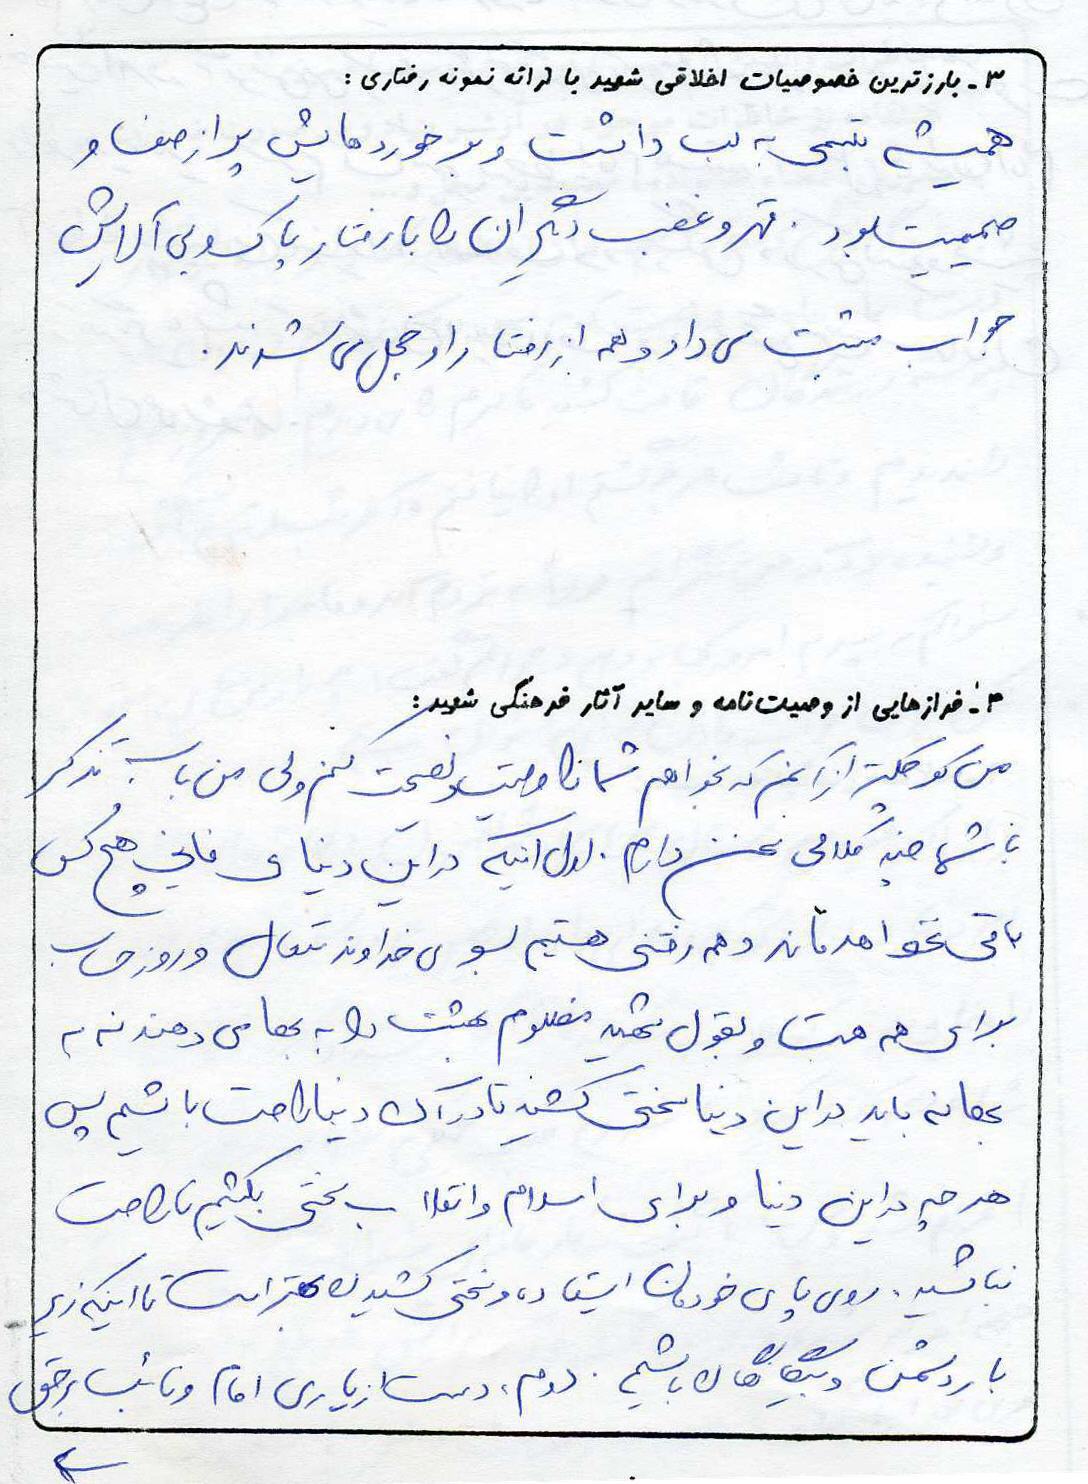 ۳ـ بارزترین خصوصیات اخلاقی شهید با ارائه نمونه رفتاری :
همیشه تبسمی به لب داشت و برخوردهایش پر از صفا و
صمیمیت بود . قهر و غضب دیگران را با رفتار پاک و بی آلایش
جواب مثبت می داد و همه از رفتار او خجل می شدند .
۴ـ فرازهایی از وصیت‌نامه و سایر آثار فرهنگی شهید :
من کوچکتر از آنم که بخواهم شما را وصیت و نصیحت کنم ولی من باب تذکر
با شما چند کلامی سخن دارم . اول اینکه در این دنیای فانی هیچ کس
باقی نخواهد ماند و همه رفتنی هستیم بسوی خداوند متعال و روز حساب
برای همه هست و بقول شهید مظلوم بهشت را به بها می دهند نه به
بهانه باید در این دنیا سختی کشید تا در آن دنیا راحت باشیم پس
هر چه در این دنیا و برای اسلام و انقلاب سختی بکشیم ناراحت
نباشید . روی پای خودمان ایستاده و سختی کشیدن بهتر است تا اینکه زیر
بار دشمن و بیگانگان باشیم . دوم ، دست از یاری امام و نائب برحق